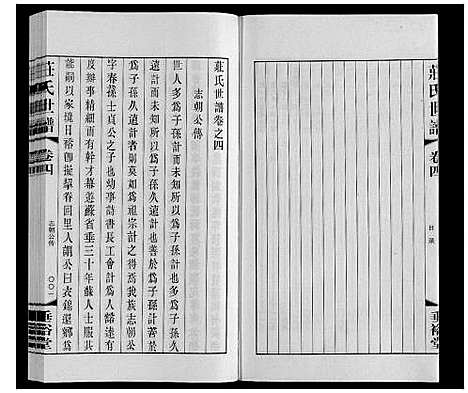 莊氏世譜
卷四
目錄
垂裕堂
莊氏世譜卷之四
志朝公傳
世人多爲子孫計而未知所以爲子孫久遠計也善於爲子孫計
遠計而未知所以爲子孫久遠計者則莫如爲祖宗計之得焉我族志朝公
字春蓀士貞公之子也幼事詩書長工會計爲人
度辦事精細而有幹才幕遊蘇省垂三十年蘇人士服其
能嗣以家
日裕卽擬挈眷回里入朝公曰衣錦還鄉爲
莊氏世譜
卷四
志朝公傳
〇〇一
垂裕堂